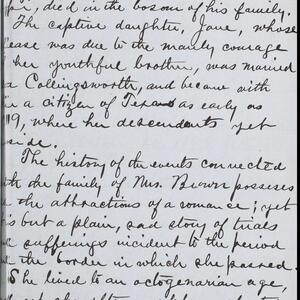 died in the bosom of his family.
The captive daughter, Jane, whose
ease was due to the manly courage
her youthful brother, was married
a Collingsworth, and became with
a citizen of Texas as early as
19, where her descendents yet
side.
The history of the events connected
the family of Mrs. Brown possesses
the attractions of a romance; yet
is but a plain, sad story of trials
sufferings incident to the period
the border in which she passed.
She lived to an octogenarian age,